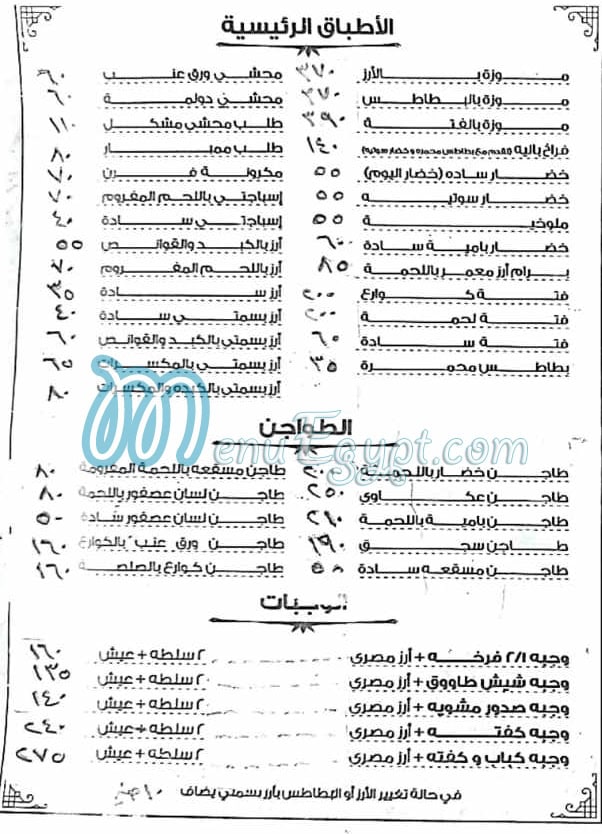 الأطباق الرئيسية
موزة بالأرز ٣٧٠
موزة بالبطاطس ٣٧٠
موزة بالفتة ٣٩٠
فراخ بانيه (تقدم مع بطاطس محمره و خضار سوتيه) ١٤٠
خضار ساده (خضار اليوم) ٥٥
خضار سوتيه ٥٥
ملوخية ٥٥
خضار بامية سادة ٦٠
برام أرز معمر باللحمة ٨٥
فتة كوارع ٢٠٠
فتة لحمة ٢٠٠
فتة سادة ٦٠
بطاطس محمرة ٣٥
محشي ورق عنب ٦٠
محشي دولمة ٦٠
طلب محشي مشكل ١١٠
طلب ممبار ٨٠
مكرونة فرن ٧٠
إسباجتي باللحم المفروم ٧٠
إسباجتي سادة ٤٠
أرز بالكبد والقوانص ٥٥
أرز باللحم المفروم
أرز سادة ٣٥
أرز بسمتي سادة ٤٠
أرز بسمتي بالكبد والقوانص ٦٠
أرز بسمتي بالمكسرات ٦٥
أرز بسمتي بالكبده والمكسرات ٨٠
MenuEgypt.com
الطواجن
طاجن خضار باللحمة ٢٠٠
طاجن عكاوي ٢٥٠
طاجن بامية باللحمة ٢١٠
طاجن سجق ١٩٠
طاجن مسقعه سادة ٥٠
طاجن مسقعه باللحمة المفرومة ٨٠
طاجن لسان عصفور باللحمة ٨٠
طاجن لسان عصفور سادة ٥٠
طاجن ورق عنب بالكوارع ١٦٠
طاجن كوارع بالصلصة ١٦٠
الوجبات
وجبه ٢/١ فرخه + أرز مصري ٢ سلطه + عيش ١٦٠
وجبه شيش طاووق + أرز مصري ٢ سلطه + عيش ١٣٥
وجبه صدور مشويه + أرز مصري ٢ سلطه + عيش ١٤٠
وجبه كفته + أرز مصري ٢ سلطه + عيش ٢٤٠
وجبه كباب و كفته + أرز مصري ٢ سلطه + عيش ٢٧٥
في حالة تغيير الأرز أو البطاطس بأرز بسمتي يضاف ١٠ جنيه